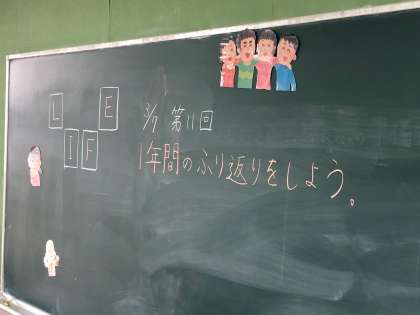 L I F E
3/7 第11回
1年間のふり返りをしよう。